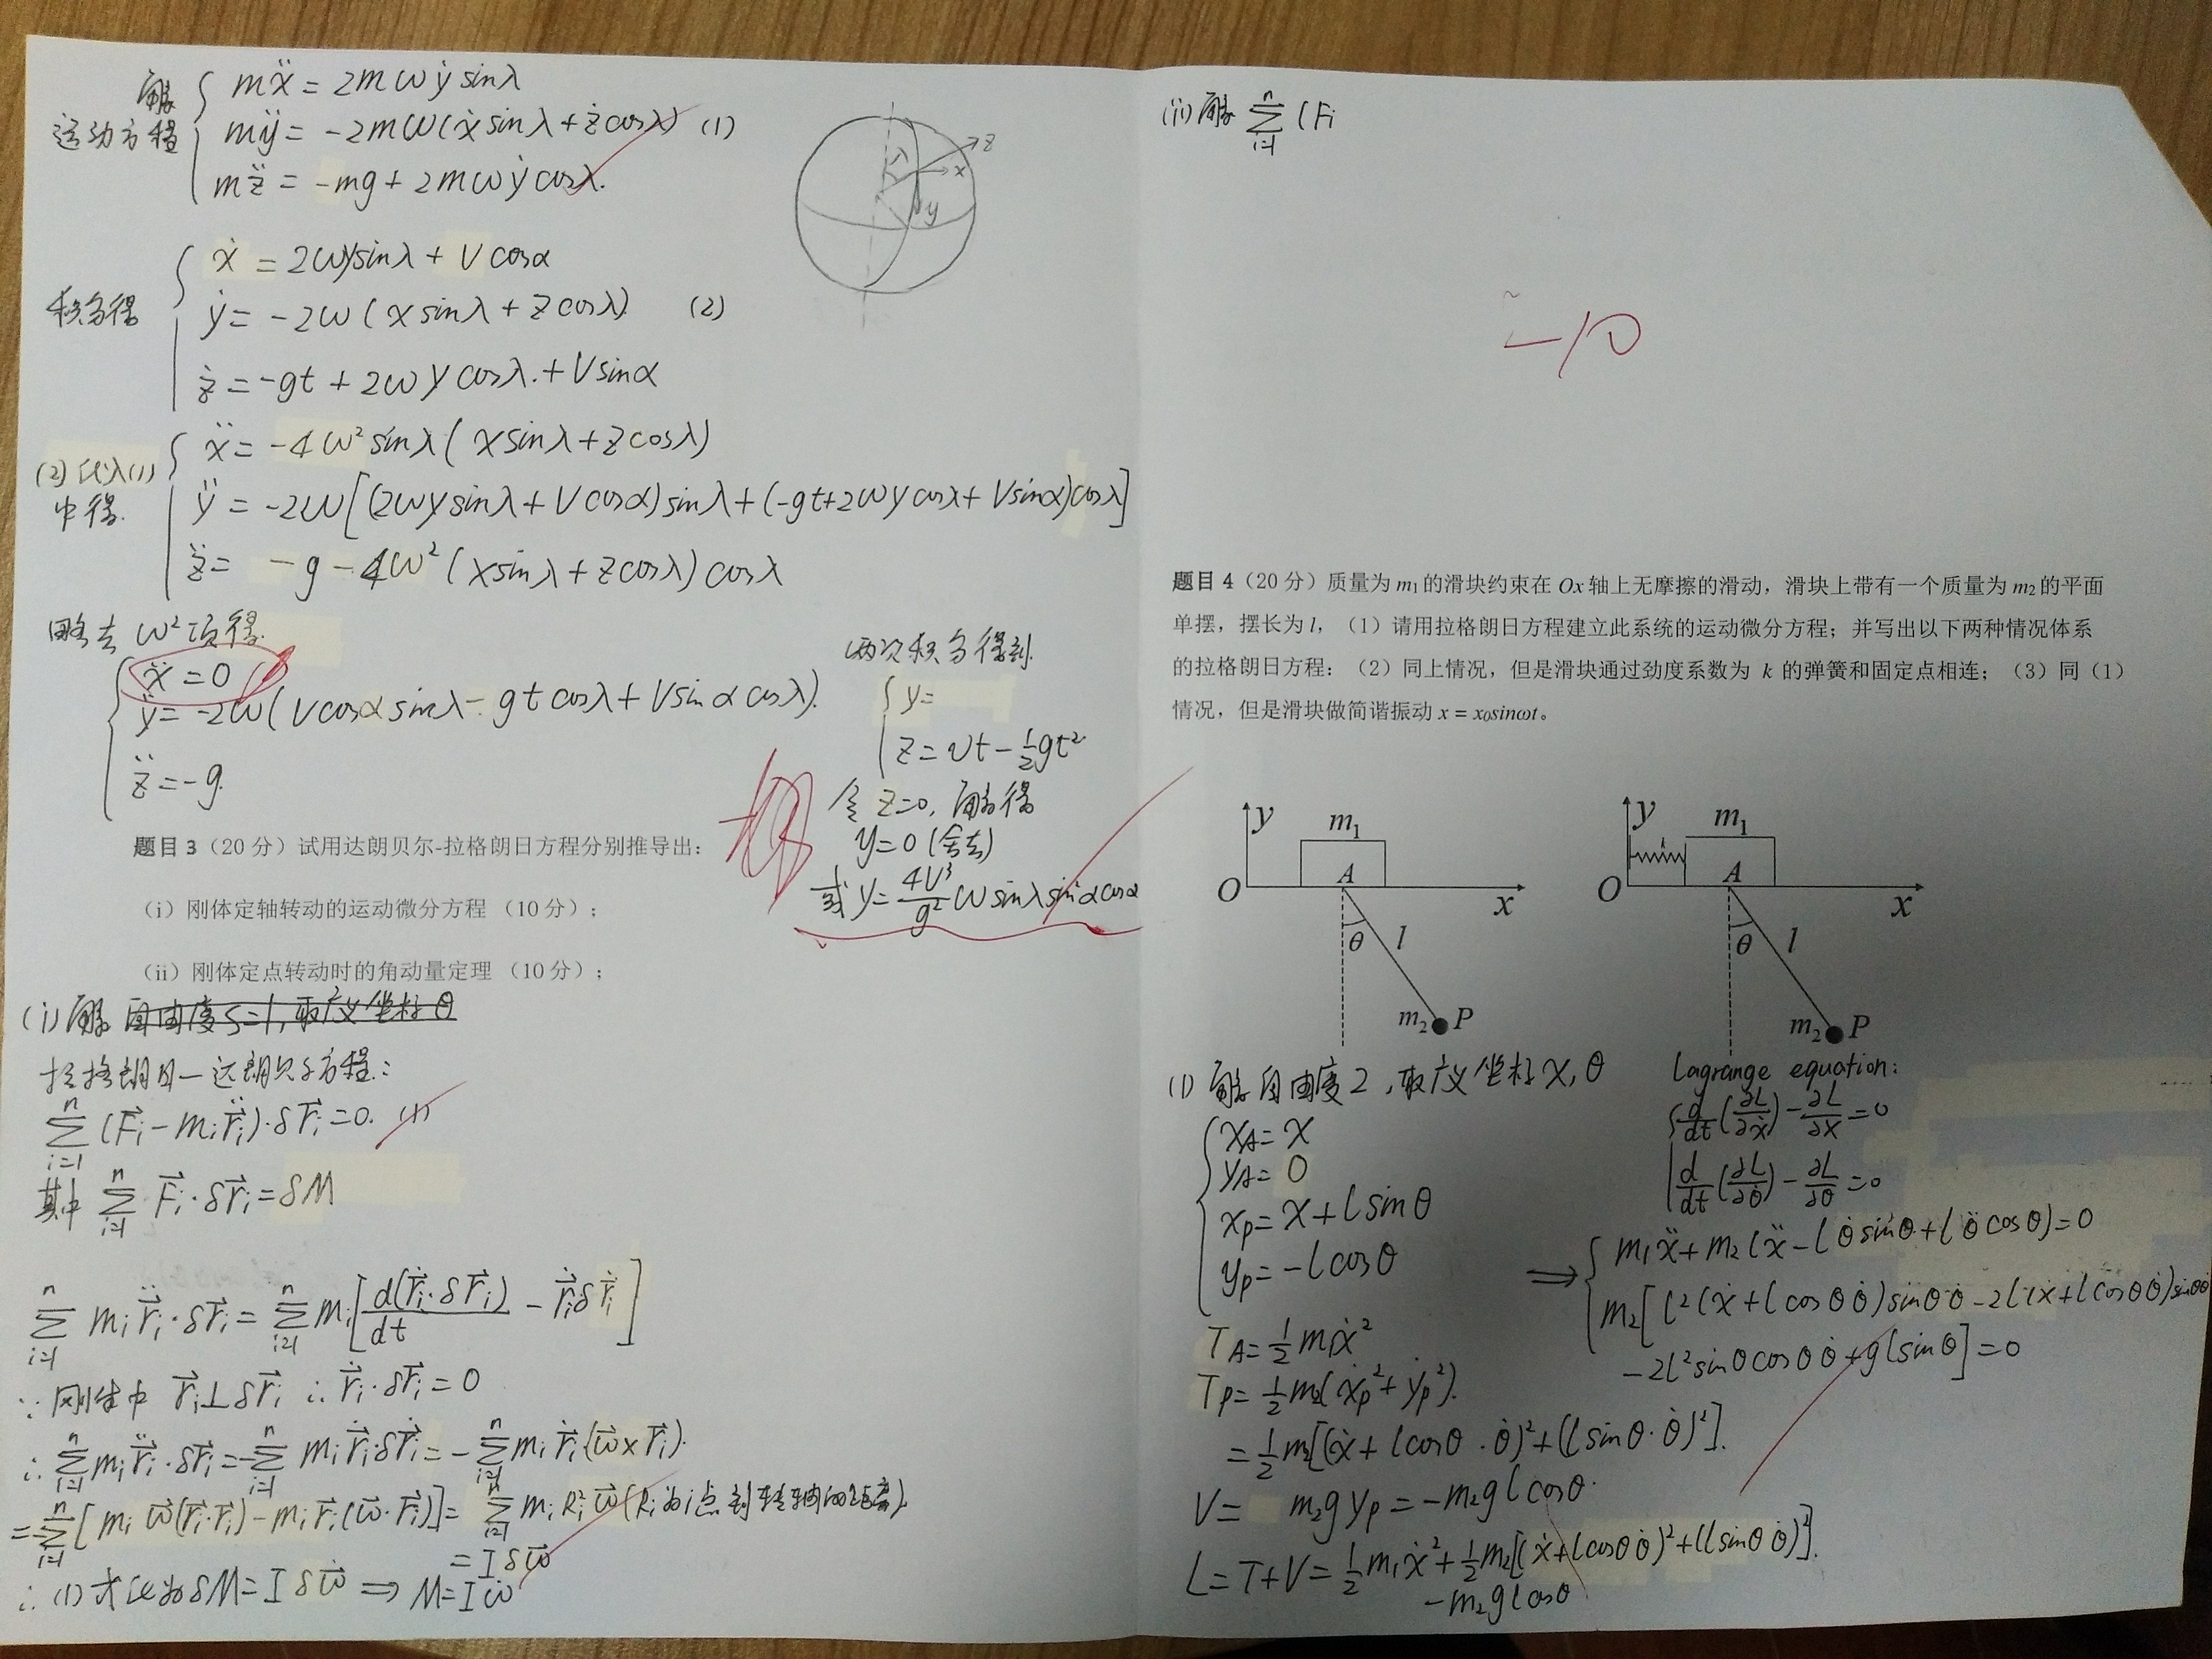 解
运动方程
mẍ = 2mωẏ sinλ
mÿ = -2mω(ẋ sinλ + ż cosλ) (1)
mz̈ = -mg + 2mωẏ cosλ.
z
x
y
λ
积分得
ẋ = 2ωy sinλ + V cosα
ẏ = -2ω(x sinλ + z cosλ) (2)
ż = -gt + 2ωy cosλ. + V sinα
(2)代入(1)
中得.
ẍ = -4ω² sinλ (x sinλ + z cosλ)
ÿ = -2ω[(2ωy sinλ + V cosα) sinλ + (-gt + 2ωy cosλ + V sinα) cosλ]
z̈ = -g - 4ω² (x sinλ + z cosλ) cosλ
略去 ω² 项得.
ẍ = 0
ÿ = -2ω(V cosα sinλ - gt cosλ + V sinα cosλ).
z̈ = -g.
两次积分得到.
y =
z = vt - ½gt²
令 z=0, 解得
y=0 (舍去)
或 y = 4V³/g² ω sinλ sin²α cosα
题目3（20分）试用达朗贝尔-拉格朗日方程分别推导出：
（i）刚体定轴转动的运动微分方程（10分）；
（ii）刚体定点转动时的角动量定理（10分）；
(i) 解 自由度s=1, 取广义坐标θ
拉格朗日—达朗贝尔方程:
∑ᵢ₌₁ⁿ (F⃗ᵢ - mᵢr̈⃗ᵢ)·δr⃗ᵢ = 0. (1)
其中 ∑ᵢ₌₁ⁿ F⃗ᵢ·δr⃗ᵢ = δM
∑ᵢ₌₁ⁿ mᵢ r̈⃗ᵢ·δr⃗ᵢ = ∑ᵢ₌₁ⁿ mᵢ [d(ṙ⃗ᵢ·δr⃗ᵢ)/dt - ṙ⃗ᵢδṙ⃗ᵢ]
∵ 刚体中 r⃗ᵢ⊥δr⃗ᵢ ∴ ṙ⃗ᵢ·δr⃗ᵢ = 0
∴ ∑ᵢ₌₁ⁿ mᵢr̈⃗ᵢ·δr⃗ᵢ = -∑ᵢ₌₁ⁿ mᵢ ṙ⃗ᵢ·δṙ⃗ᵢ = -∑ᵢ₌₁ⁿ mᵢ ṙ⃗ᵢ(ω⃗×r⃗ᵢ).
= ∑ᵢ₌₁ⁿ [mᵢ ω⃗(r⃗ᵢ·r⃗ᵢ) - mᵢr⃗ᵢ(ω⃗·r⃗ᵢ)] = ∑ᵢ₌₁ⁿ mᵢ Rᵢ² ω⃗ (Rᵢ为i点到转轴的距离).
= I δω⃗
∴ (1)式化为 δM = I δω⃗ ⇒ M = Iω̇
(ii) 解 ∑ᵢ₌₁ⁿ (Fᵢ
-10
题目4（20分）质量为 m₁ 的滑块约束在 Ox 轴上无摩擦的滑动，滑块上带有一个质量为 m₂ 的平面
单摆，摆长为 l，（1）请用拉格朗日方程建立此系统的运动微分方程；并写出以下两种情况体系
的拉格朗日方程：（2）同上情况，但是滑块通过劲度系数为 k 的弹簧和固定点相连；（3）同（1）
情况，但是滑块做简谐振动 x = x₀sinωt。
y
m₁
A
O
x
θ
l
m₂
P
y
m₁
k
A
O
x
θ
l
m₂
P
(1) 解 自由度2, 取广义坐标 x, θ
x_A = x
y_A = 0
x_P = x + l sinθ
y_P = -l cosθ
T_A = ½ m₁ẋ²
T_P = ½ m₂(ẋ_P² + ẏ_P²).
= ½ m₂[(ẋ + l cosθ·θ̇)² + (l sinθ·θ̇)²].
V = m₂g y_P = -m₂g l cosθ.
L = T+V = ½ m₁ẋ² + ½ m₂[(ẋ + l cosθ θ̇)² + (l sinθ θ̇)²].
-m₂g l cosθ
Lagrange equation:
d/dt(∂L/∂ẋ) - ∂L/∂x = 0
d/dt(∂L/∂θ̇) - ∂L/∂θ = 0
⇒ m₁ẍ + m₂(ẍ - l θ̇ sinθ + l θ̈ cosθ) = 0
m₂[l²(ẋ + l cosθ θ̇) sinθ θ̇ - 2l(ẋ + l cosθ θ̇) sinθ θ̇
-2l² sinθ cosθ θ̇ + g l sinθ] = 0